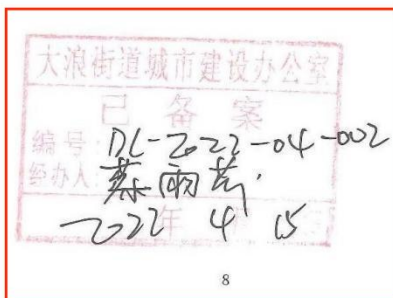 大浪街道城市建设办公室
已备案
编号:DL-2022-04-002
经办人:雨
2022年4 15
8